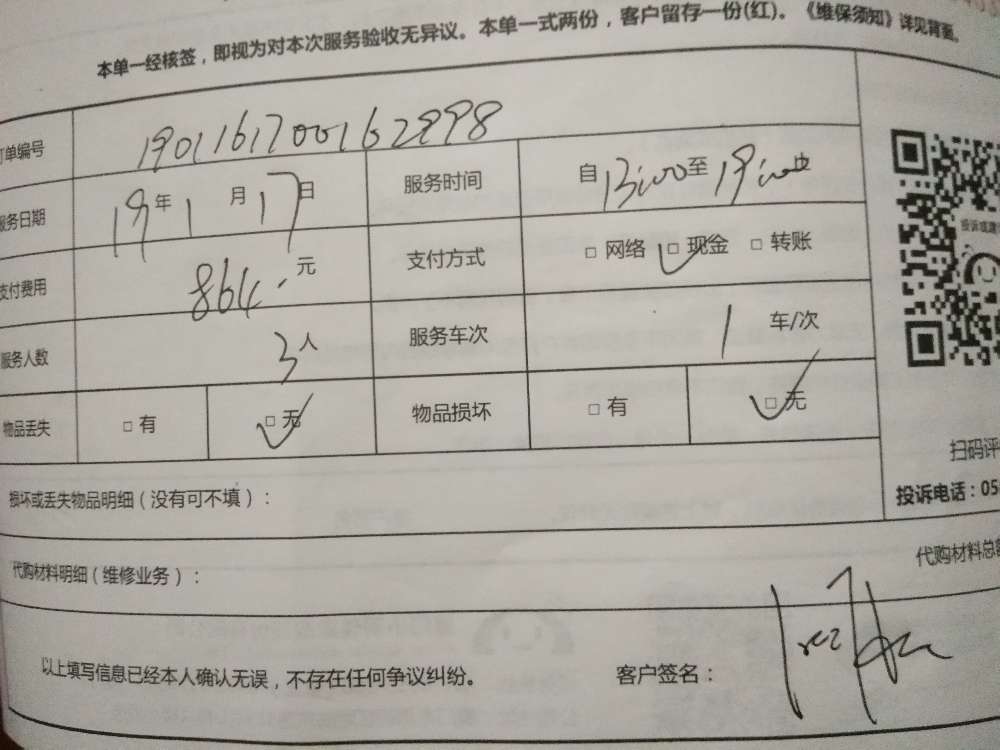 本单一经核签，即视为对本次服务验收无异议。本单一式两份，客户留存一份(红)。《维保须知》详见背面。
订单编号 1901161700162998
服务日期 19年1月17日 服务时间 自13:00至19:00止
支付费用 864.元 支付方式 □ 网络 □ 现金 □ 转账
服务人数 3人 服务车次 1 车/次
物品丢失 □ 有 □ 无 物品损坏 □ 有 □ 无
扫码评
投诉电话：05
损坏或丢失物品明细（没有可不填）：
代购材料明细（维修业务）： 代购材料总
以上填写信息已经本人确认无误，不存在任何争议纠纷。 客户签名：